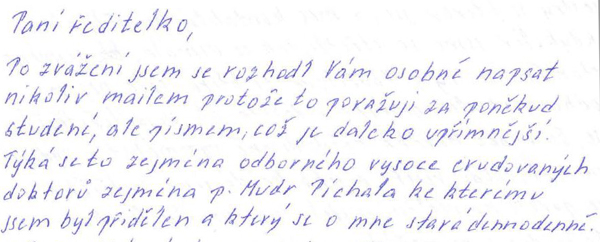 Paní ředitelko,
Po zvážení jsem se rozhodl Vám osobně napsat
nikoliv mailem protože to považuji za poněkud
studené, ale písmem, což je daleko upřímnější.
Týká se to zejména odborného vysoce erudovaných
doktorů zejména p. Mudr Píchala ke kterému
jsem byl přidělen a který se o mne stará dennodenně.